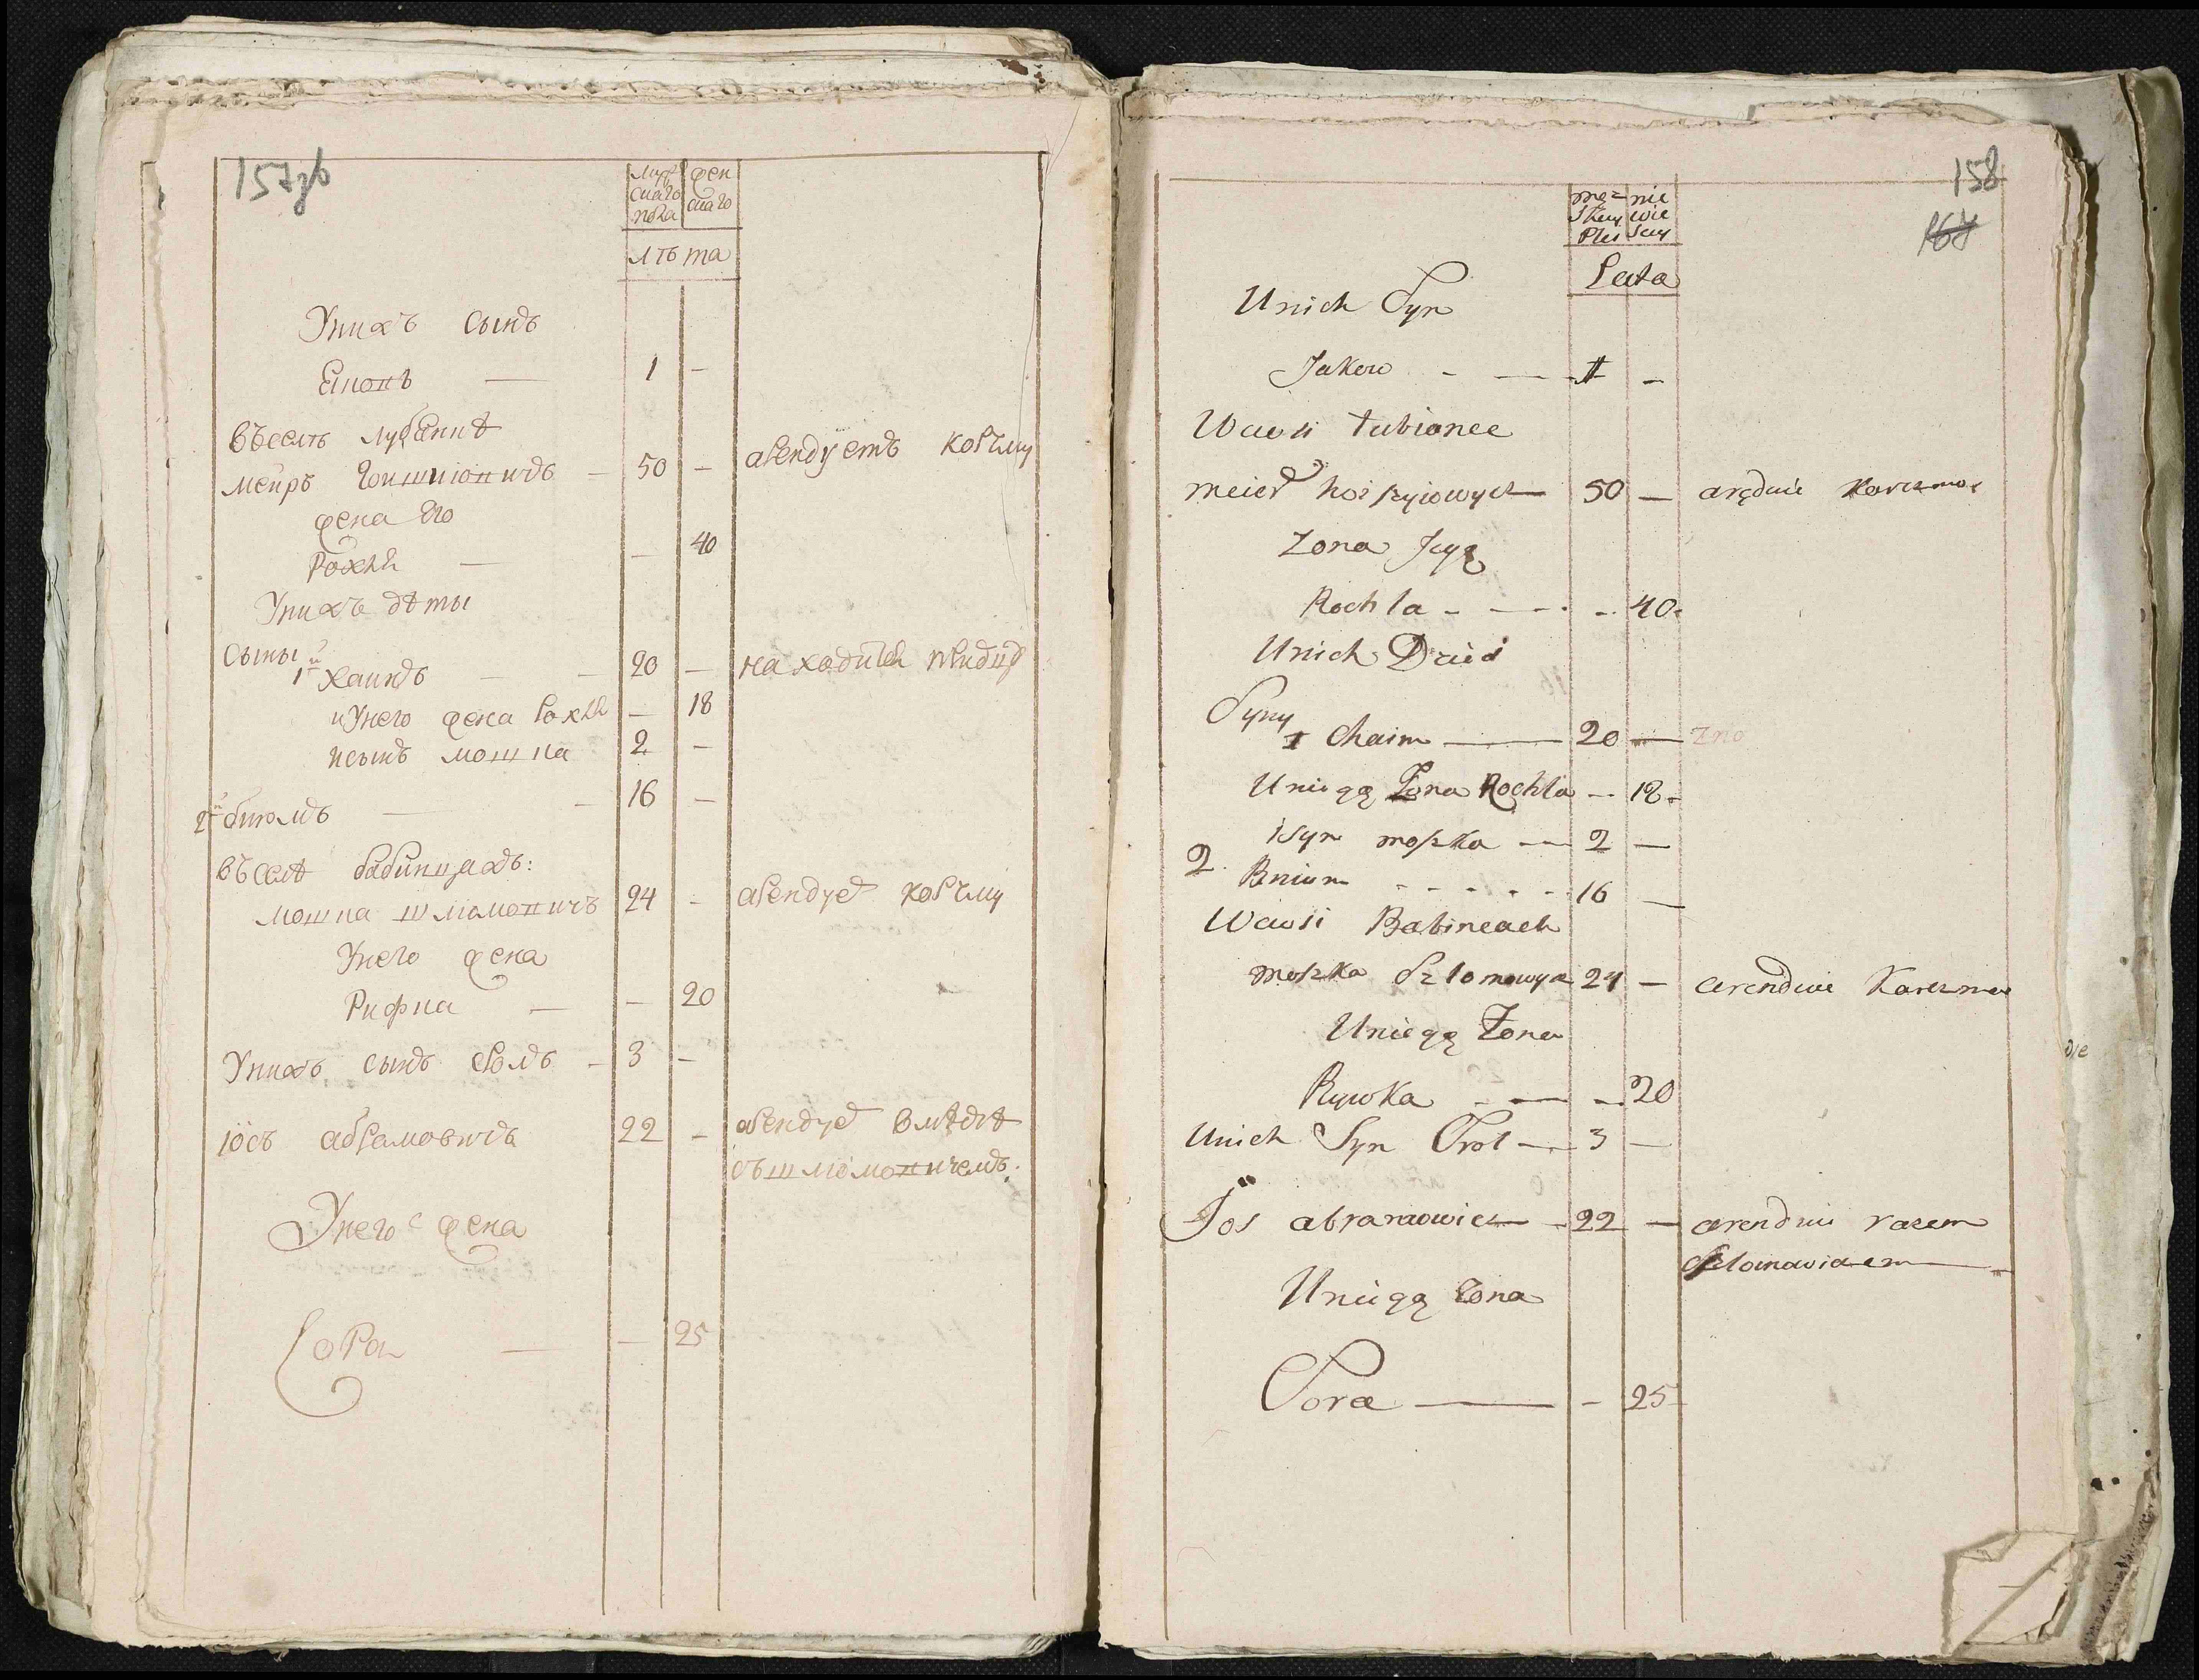 157зв
муж скаго пола
жен скаго
лѣта
Унихъ сынъ
Якопъ — 1 —
въселѣ лубянцѣ
меиръ — 50 — арендуетъ корчму
жена его
Рохля — — 40
Унихъ дѣти
сыны 1й хаимъ — 20 —
иУнего жена Рохля — 18
исынъ мошка 2 —
2й — 16 —
въселѣ бабинцахъ:
мошка шмомовичъ 24 - арендуе корчму
Унего жена
Рифка — — 20
Унихъ сынъ сролъ - 3 —
іосъ абрамовичъ 22 - арендуе вмѣстѣ
съшмомовичемъ.
Унего жена
Сора — — 25
158
164
męz skey płci
nie wie scey
Lata
Unich Syn
Jakow - — 1 -
Wawsi Lubiance
meier — 50 — aręduie Karczmo
Zona Jegą
Rochla - — - 40.
Unich Dzieci
Syny
1 Chaim — 20 — zna
Uniegą Zona Rochla — 18.
isyn moszka — 2 —
2 Bnium - - - - - 16 —
Wawsi Babincach
moszka Szlomowycz 24 — arenduie Karczme
Uniegą Zona
Rywka - — - 20
Unich Syn Srol — 3 —
Jos abramowicz - 22 — arenduie razem
Szlomowiczem
Uniegą Zona
Sora — - 25